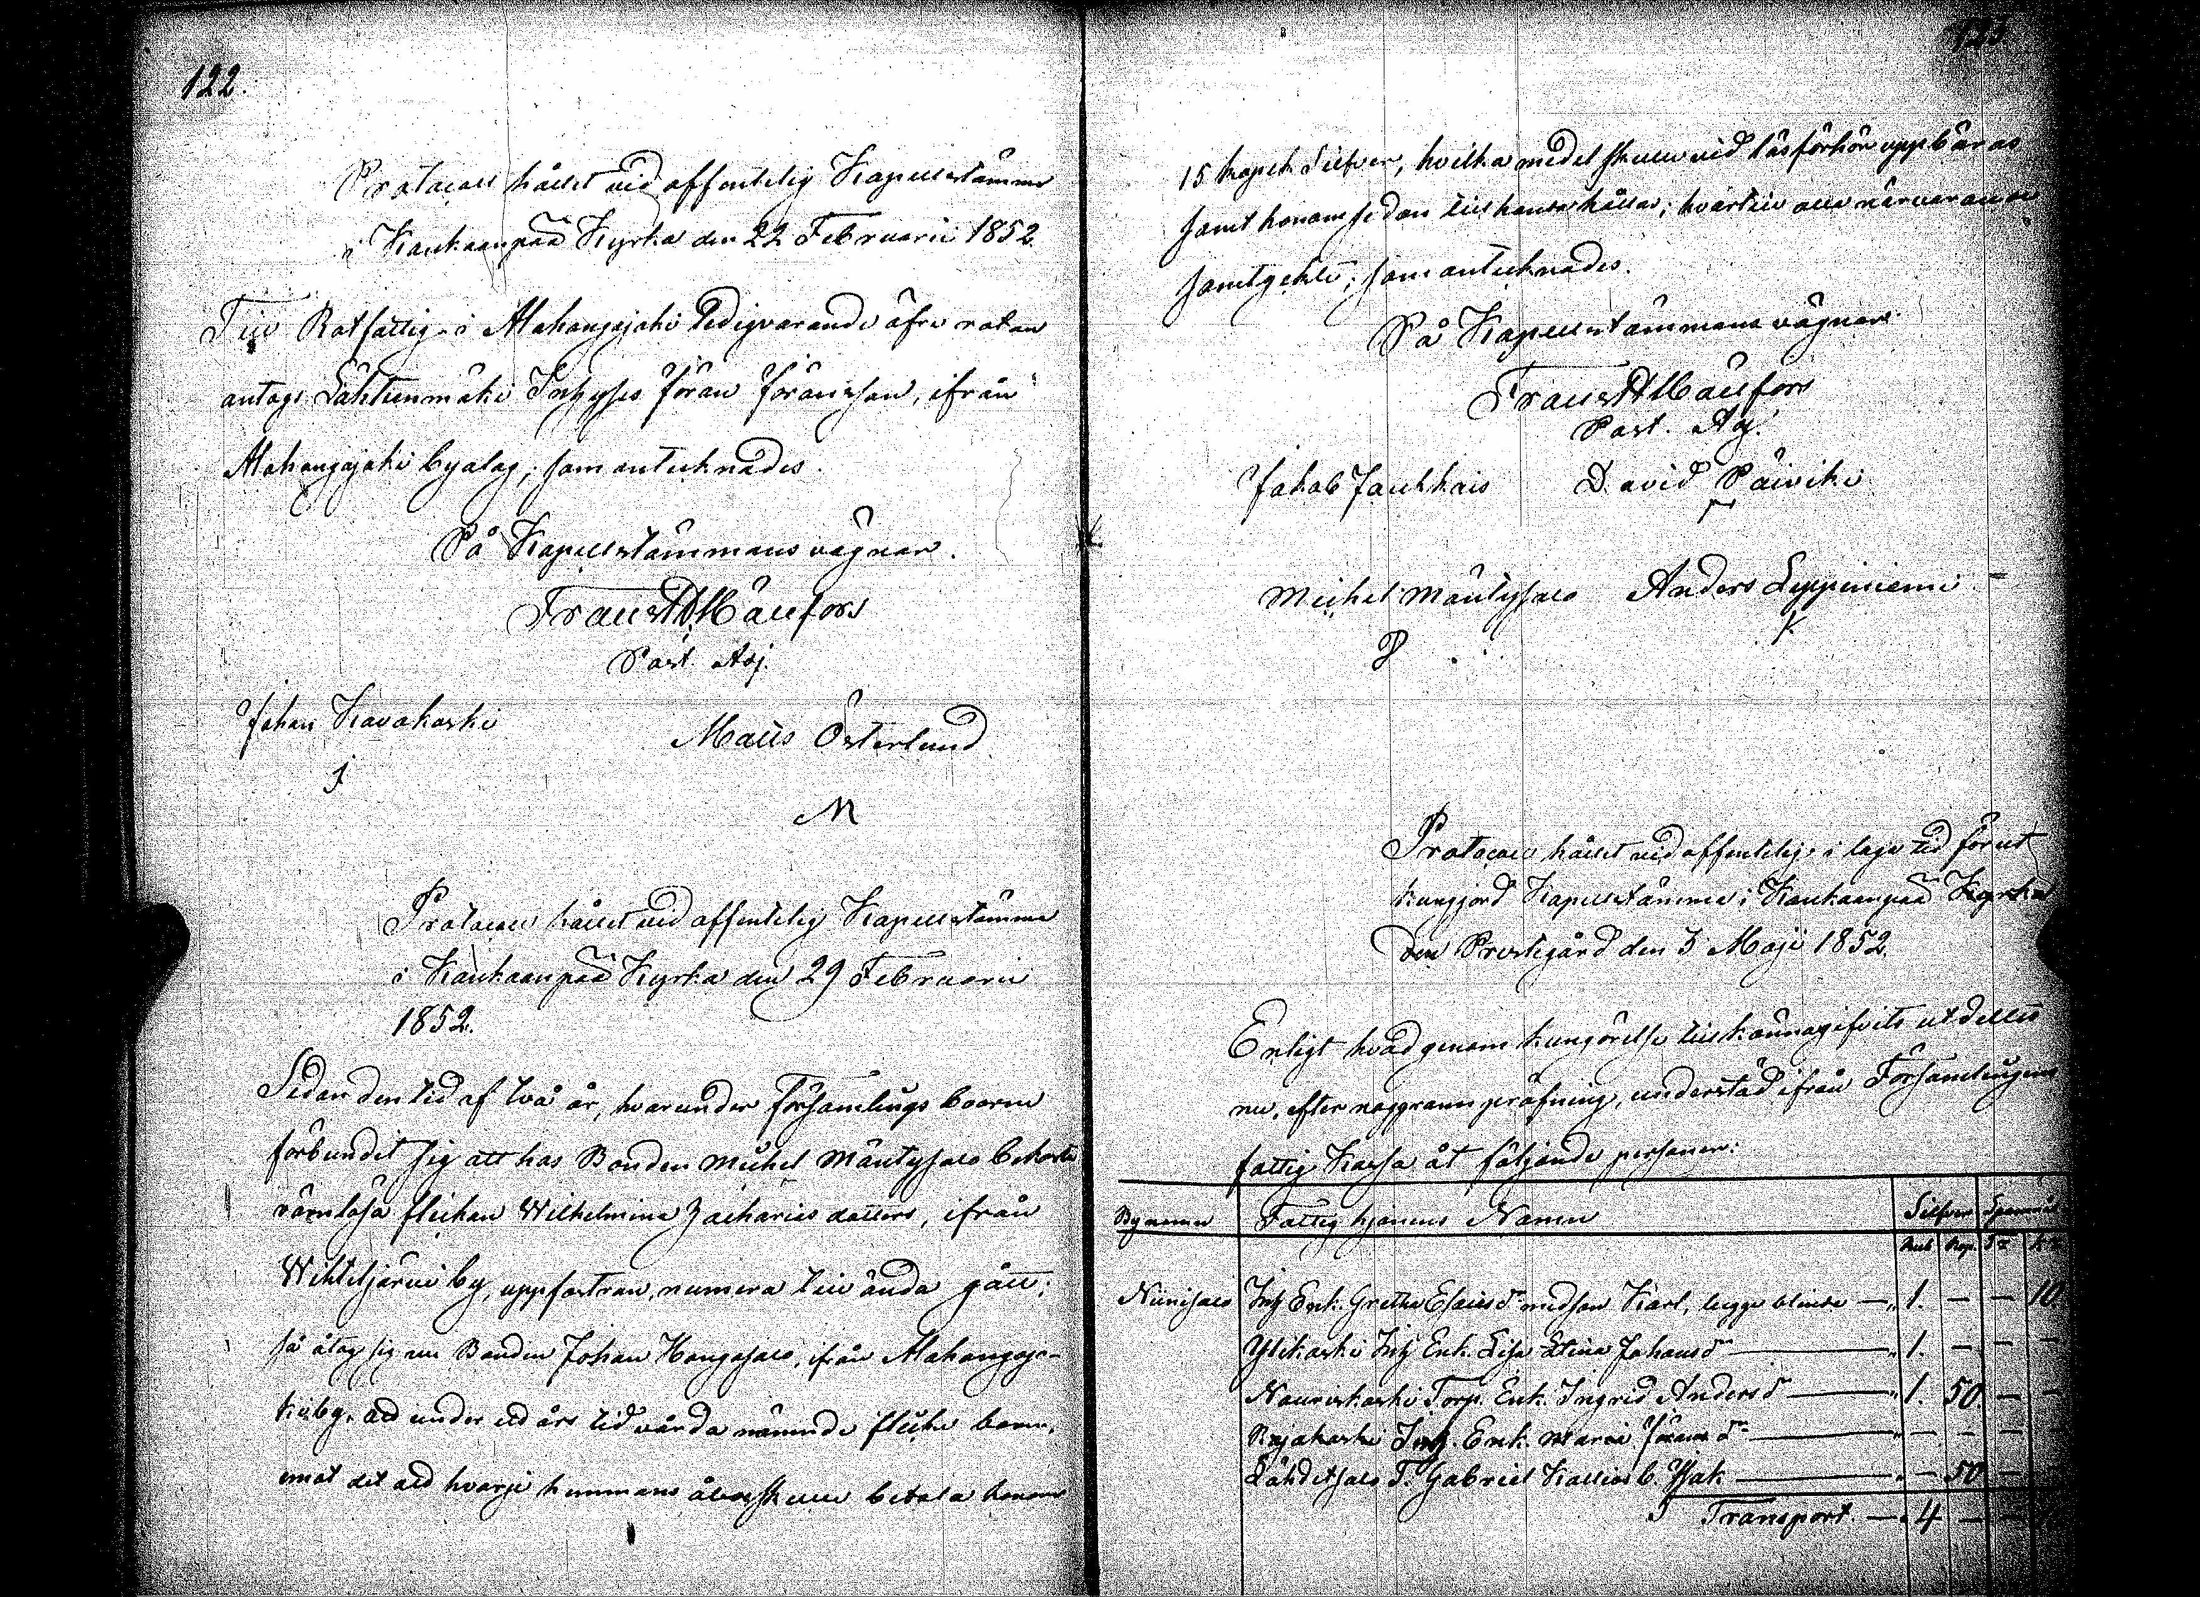 122.
Protocoll hållet vid offentelig Kapellstämma
i Kankaanpää Kyrka den 22 Februarii 1852.
Till Rotfattig i Alahongojoki ledigvarande öfre rotan
antogs Lähteenmäki Inhyses Jöran Jöransson, ifrån
Alahongojoki byalag; som antecknades.
På Kapellstämmans vägnar.
Frans Hällfors
Past. Adj.
Johan Kavakoski
Matts Österlund
J
M
Protocoll hållet vid offentelig Kapellstämma
i Kankaanpää Kyrka den 29 Februarii
1852.
Sedan den tid af två år, hvarunder Församlings boerne
förbundit sig att hos Bonden Michel Mäntysalo bekosta
värnlösa flickan Wilhelmina Zacharias dotters, ifrån
Wihteljärvi by, uppfostran, numera till ända gått;
så åtog sig nu Bonden Johan Hongasalo, ifrån Alahongojo-
ki by, att under ett års tid vårda nämnde flicke barn,
emot det att hvarje hemmans åboe skulle betala honom
123
15 kopek Silfver, hvilka medel skulle vid läsförhör uppbäras
samt honom sedan tillhandahållas; hvartill alla närvarande
samtyckte; som antecknades.
På Kapellstämmans vägnar.
Frans Hällfors
Past. Adj.
Jakob Jauhkais David Päivike
Michel Mäntysalo Anders Leppiniemi
Protocoll hållet vid offentelig i laga tid förut
kungjord Kapellstämma i Kankaanpää Kyrka
den Prestegård den 3 Maji 1852.
Enligt hvad genom kungörelse tillkännagifvits utdeltes
nu, efter noggrann pröfning, understöd ifrån Församlingens
fattig Kassa åt följande personer:
By namn Fattig hjonens Namn Silfver Spannmål
Rub. Kop. Tr Kr
Niinisalo Inh Enk. Gretha Esaiasdr med son Karl, begge blinda — 1. — — 10
Ylikoski Inh Enk. Lisa Stina Johansdr — 1. — — —
Nauriskoski Torp. Enk. Ingrid Andersdr — 1. 50. — —
Rajakoski Inh. Enk. Maria Jöransdr — — — — —
Lähdetsalo T. Gabriel Kallios b. Isak — — 50 — —
5 Transport. — 4 — — 10